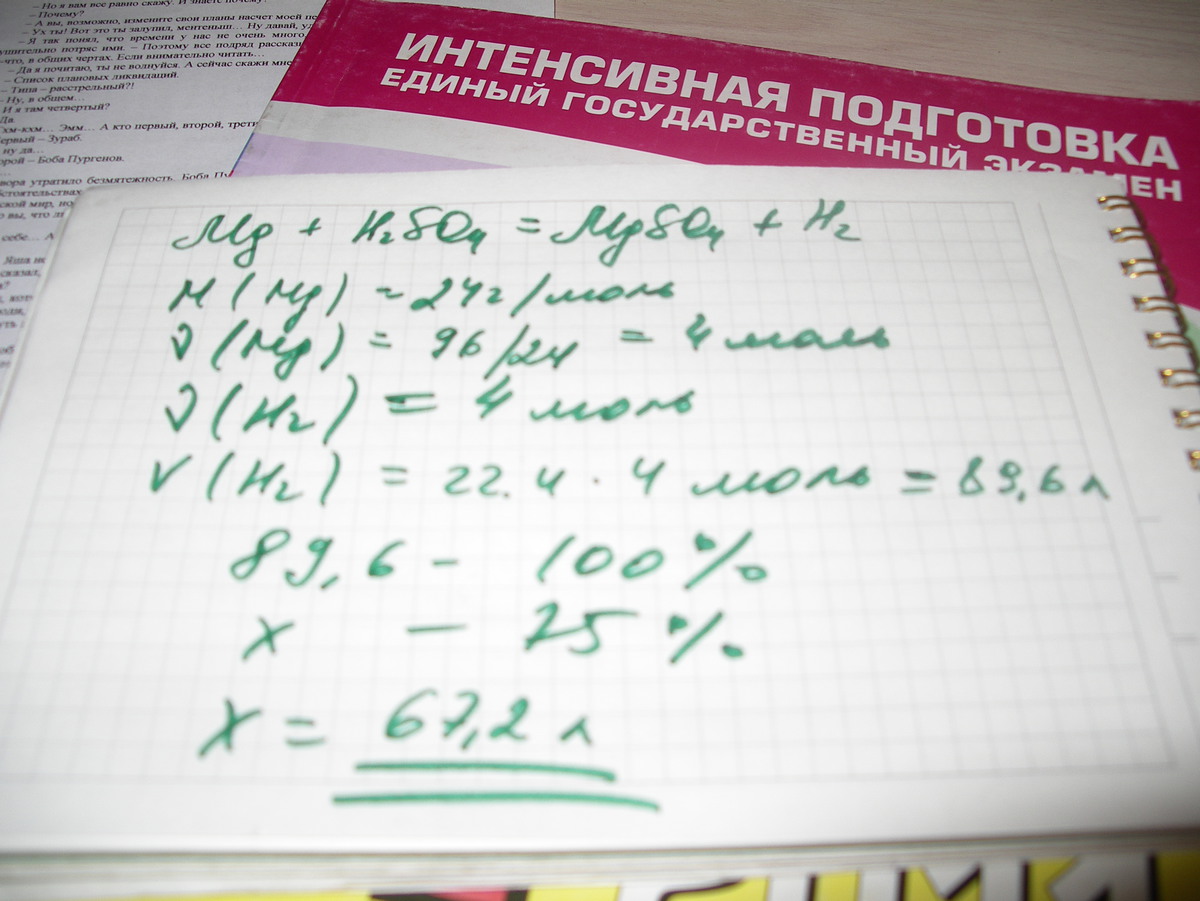 – Но я вам все равно скажу. И знаете почему?
– Почему?
– А вы, возможно, измените свои планы насчет моей
– Ух ты! Вот это ты залупил, ментеныш… Ну давай,
– Я так понял, что времени у нас не очень много
потряс ими. – Поэтому все подряд
что, в общих чертах. Если внимательно читать…
– Да я почитаю, ты не волнуйся. А сейчас скажи
– Список плановых ликвидаций.
– Типа – расстрельный?!
– Ну, в общем…
И я там четвертый?
Да.
Эмм… А кто первый, второй,
– Зураб.
ну да…
– Боба Пургенов.
утратило безмятежность. Боба
ской мир,
вы, что
себе… А
Яша не
ИНТЕНСИВНАЯ ПОДГОТОВКА
ЕДИНЫЙ ГОСУДАРСТВЕННЫЙ ЭКЗАМЕН
Mg + H₂SO₄ = MgSO₄ + H₂
M (Mg) = 24 г/моль
ν (Mg) = 96/24 = 4 моль
ν (H₂) = 4 моль
V (H₂) = 22.4 · 4 моль = 89,6 л
89,6 – 100 %
x – 75 %
x = 67,2 л